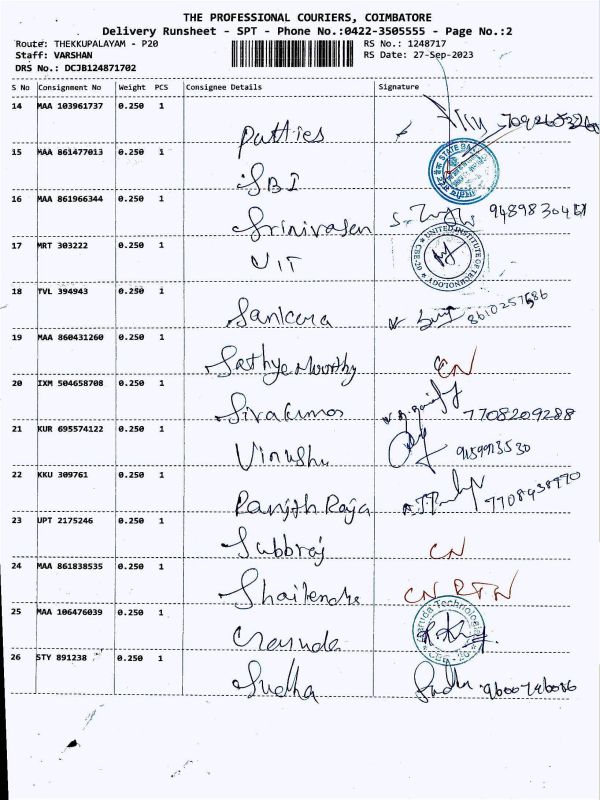 THE PROFESSIONAL COURIERS, COIMBATORE
Delivery Runsheet - SPT - Phone No.:0422-3505555 - Page No.:2
Route: THEKKUPALAYAM - P20 RS No.: 1248717
Staff: VARSHAN RS Date: 27-Sep-2023
DRS No.: DCJB124871702
S No Consignment No Weight PCS Consignee Details Signature
14 MAA 103961737 0.250 1
Patties
15 MAA 861477013 0.250 1
SBI STATE BA
16 MAA 861966344 0.250 1
Srinivasan
17 MRT 303222 0.250 1
UIT UNITED INSTITUTE OF TECHNOLOGY CBE-20
18 TVL 394943 0.250 1
Sankara
19 MAA 860431260 0.250 1
Sathya Moorthy CN
20 IXM 504658708 0.250 1
Sivakumar 7708209288
21 KUR 695574122 0.250 1
Vinushu
22 KKU 309761 0.250 1
Ranjith Raja
23 UPT 2175246 0.250 1
Subbraj CN
24 MAA 861838535 0.250 1
Shailendra CN RTN
25 MAA 106476039 0.250 1
Technologies CBE-20
26 STY 891238 0.250 1
Sudha Sudha